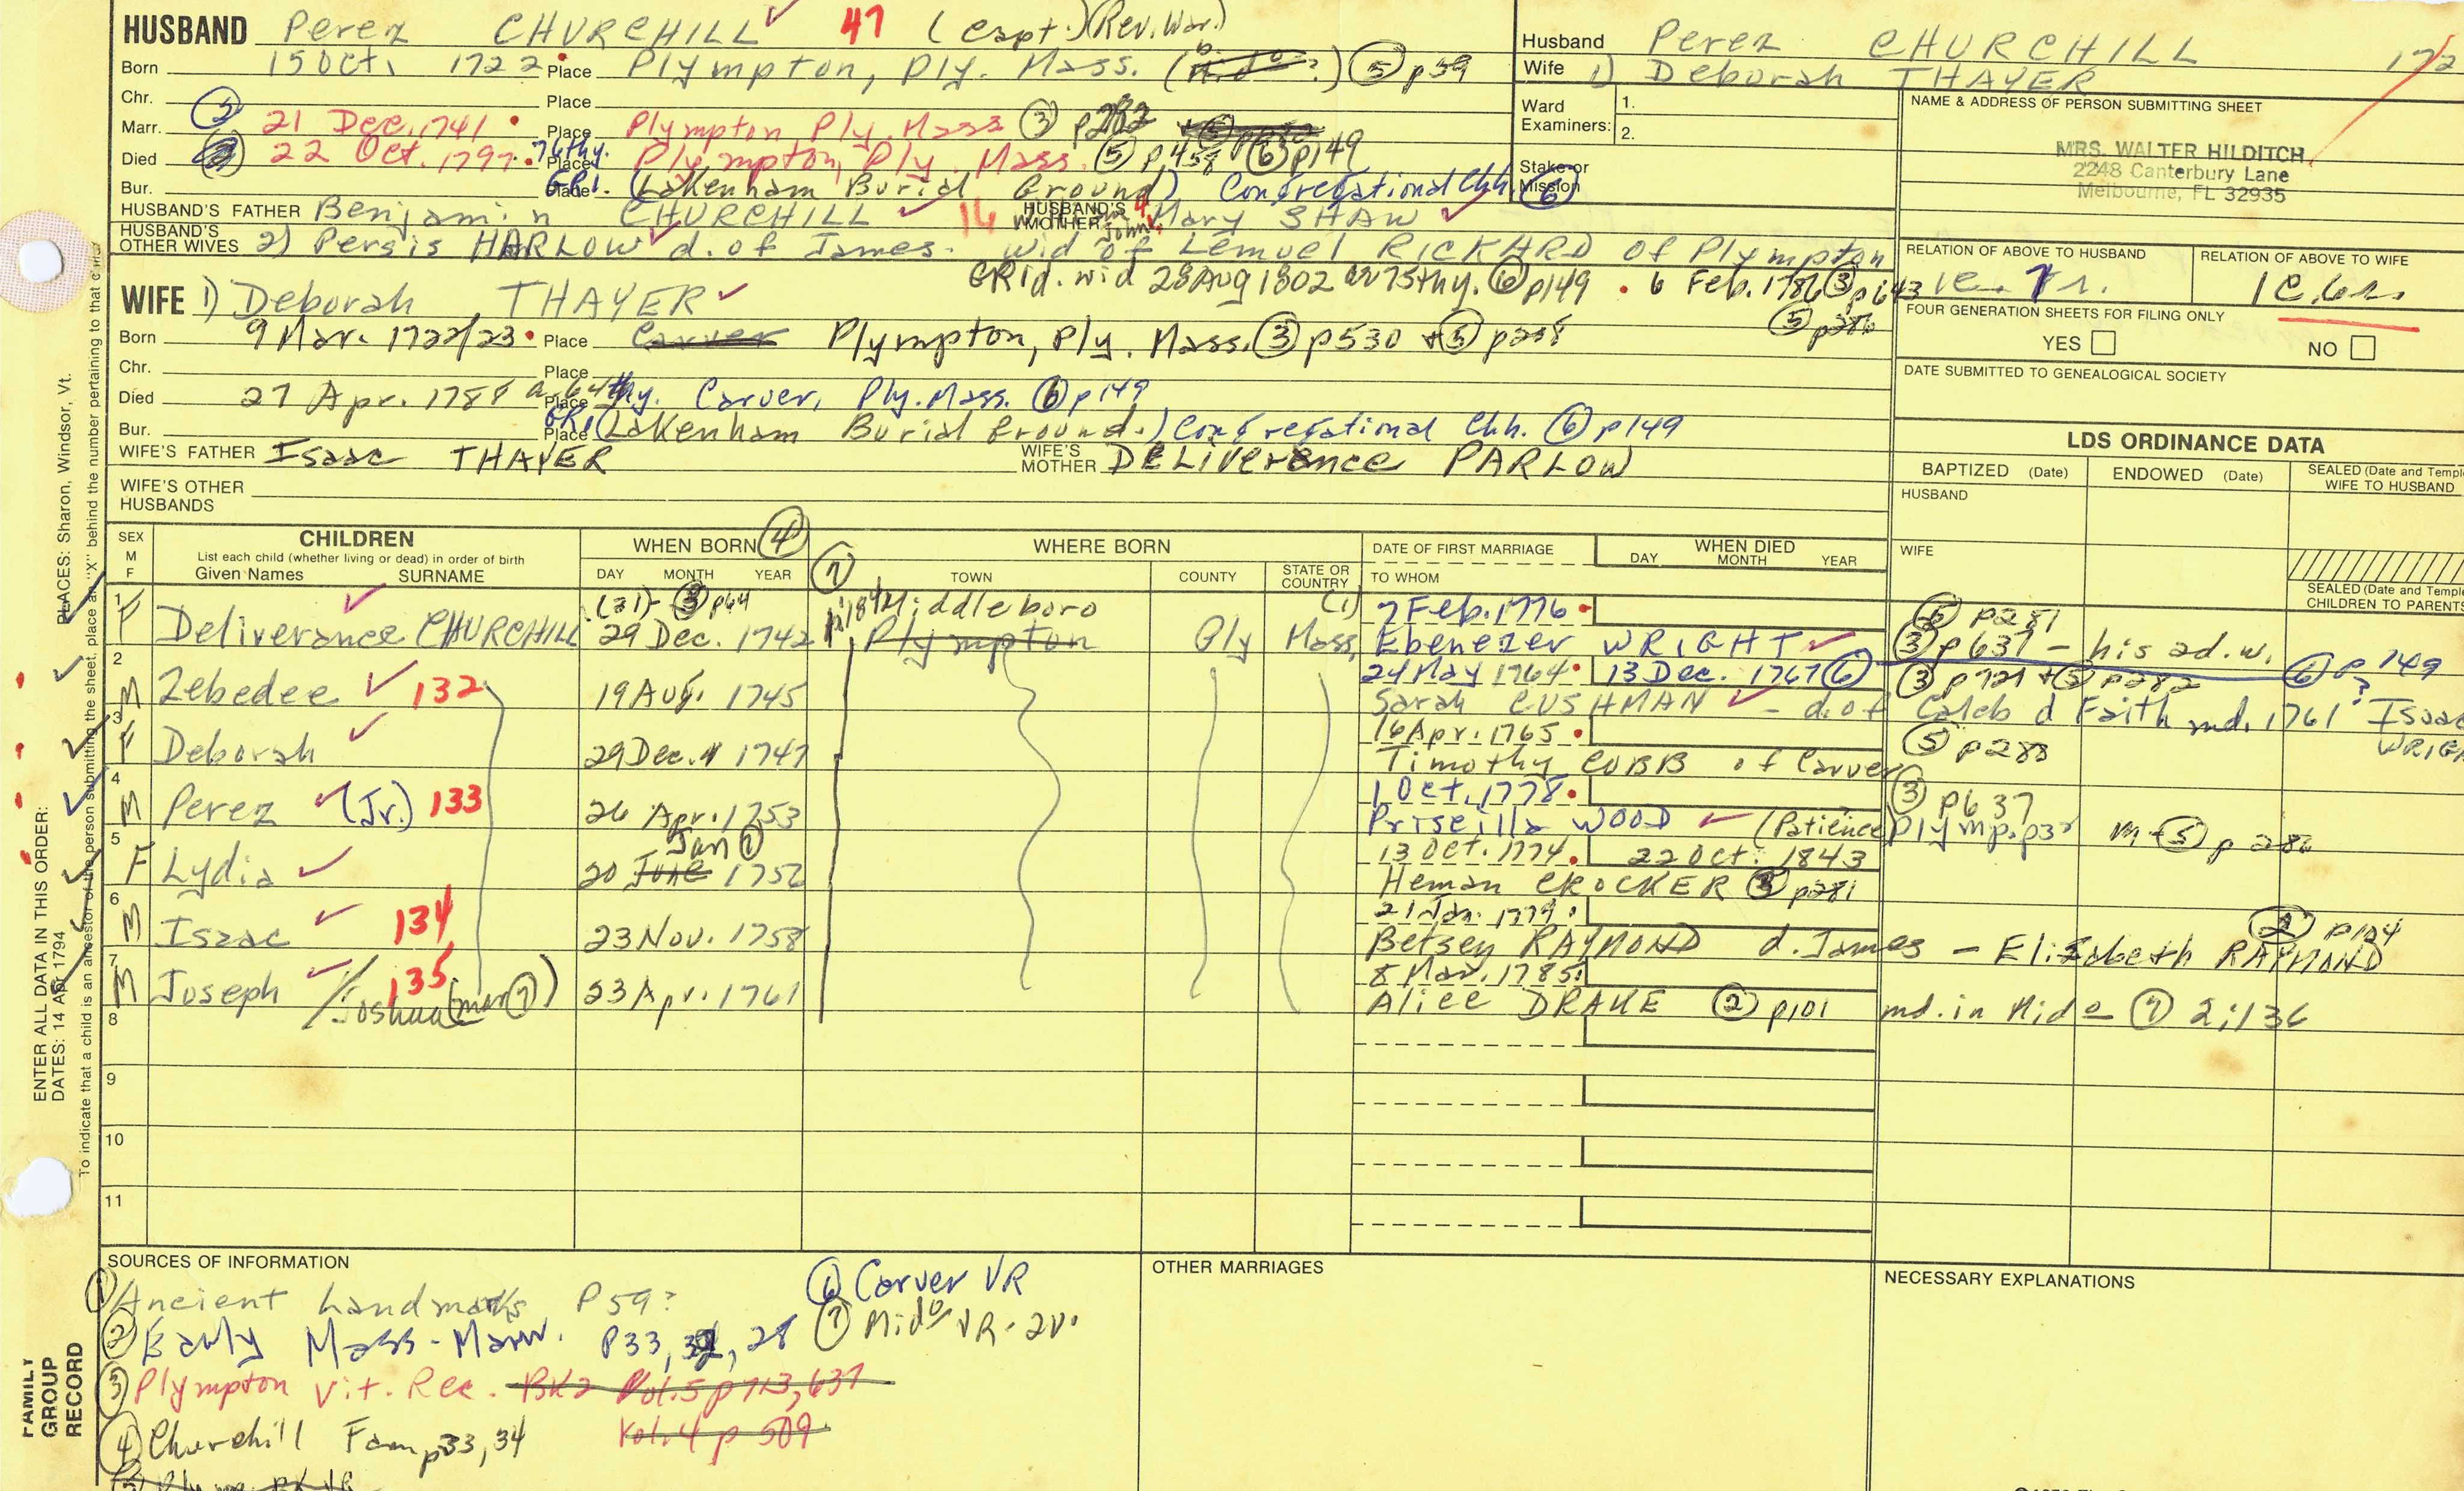 HUSBAND Perez CHURCHILL ✓ 47 (Capt.)(Rev. War.)
Born 15 Oct. 1722 Place Plympton, Ply. Mass. ⑤ p59
Chr. Place
Marr. ③ 21 Dec. 1741 Place Plympton Ply. Mass ③ p282
Died 22 Oct. 1797. 76thy. Place Plympton, Ply. Mass. ⑤ p458 ⑥ p149
Bur. GR1. Place (Lakenham Burial Ground) Congregational Chh. ⑥
HUSBAND'S FATHER Benjamin CHURCHILL ✓ 16 HUSBAND'S MOTHER Mary SHAW ✓
HUSBAND'S OTHER WIVES 2) Persis HARLOW ✓ d. of James. wid of Lemuel RICKARD of Plympton
GR1d. wid 28 Aug 1802 75thy. ⑥ p149 . 6 Feb. 1786 ③ p643
⑤ p286
WIFE 1) Deborah THAYER ✓
Born 9 Mar. 1722/23 Place Carver Plympton, Ply. Mass. ③ p530 + ⑤ p208
Chr. Place
Died 27 Apr. 1788 a. 64thy. Place Carver, Ply. Mass. ⑥ p149
Bur. GR1 Place (Lakenham Burial Ground.) Congregational Chh. ⑥ p149
WIFE'S FATHER Isaac THAYER WIFE'S MOTHER DELiverance PARLOW
WIFE'S OTHER HUSBANDS
Husband Perez CHURCHILL
Wife 1) Deborah THAYER
Ward Examiners: 1.
2.
Stake or Mission
NAME & ADDRESS OF PERSON SUBMITTING SHEET
MRS. WALTER HILDITCH
2248 Canterbury Lane
Melbourne, FL 32935
RELATION OF ABOVE TO HUSBAND RELATION OF ABOVE TO WIFE
1c. 7r. 1c. 6r.
FOUR GENERATION SHEETS FOR FILING ONLY
YES NO
DATE SUBMITTED TO GENEALOGICAL SOCIETY
LDS ORDINANCE DATA
BAPTIZED (Date) ENDOWED (Date) SEALED (Date and Templ
WIFE TO HUSBAND
HUSBAND
WIFE
SEALED (Date and Templ
CHILDREN TO PARENTS
SEX M F
CHILDREN
List each child (whether living or dead) in order of birth
Given Names SURNAME
WHEN BORN ④
DAY MONTH YEAR
⑦ WHERE BORN
TOWN COUNTY STATE OR COUNTRY
DATE OF FIRST MARRIAGE
TO WHOM
WHEN DIED
DAY MONTH YEAR
1 F Deliverance CHURCHILL (31)- ③ p64 29 Dec. 1742 Middleboro Plympton Ply Mass. (1) 7 Feb. 1776 Ebenezer WRIGHT ✓ ⑤ p281 ③ p637 - his ad. w.
2 M Zebedee ✓ 132 19 Aug. 1745 24 May 1764 13 Dec. 1767 ⑥ ⑥ p149 Sarah CUSHMAN ✓ - d. of Caleb d Faith md. 1761? Isaac WRIG
3 F Deborah ✓ 29 Dec. 1747 16 Apr. 1765 Timothy COBB of Carver ⑤ p288
4 M Perez ✓ (Jr.) 133 26 Apr. 1753 1 Oct. 1778 Priscilla WOOD ✓ (Patience Plymp. ③ p637 m- ⑤
5 F Lydia ✓ 20 June Jan ⑦ 13 Oct. 1774 22 Oct. 1843 Heman CROCKER p281
6 M Isaac ✓ 134 23 Nov. 1758 21 Jan. 1779 Betsey RAYMOND d. James - Elizabeth RAYMOND ② p104
7 M Joseph ✓ 135 /Joshua (mar ⑦) 23 Apr. 1761 8 Mar. 1785 Alice DRAKE ② p101 md. in Mid o ⑦ 2:136
8
9
10
11
SOURCES OF INFORMATION
① Ancient Landmarks P59?
② Early Mass-Marr. P33, 28
③ Plympton Vit. Rec. BK2 Vol. 5 p713, 637
Vol. 4 p 509
④ Churchill Fam p33, 34
⑥ Carver VR
⑦ Mid o VR. 2V.
OTHER MARRIAGES
NECESSARY EXPLANATIONS
PLACES: Sharon, Windsor, Vt.
ENTER ALL DATA IN THIS ORDER:
DATES: 14 Apr 1794
To indicate that a child is an ancestor of the person submitting the sheet, place an "X" behind the number pertaining to that
FAMILY GROUP RECORD